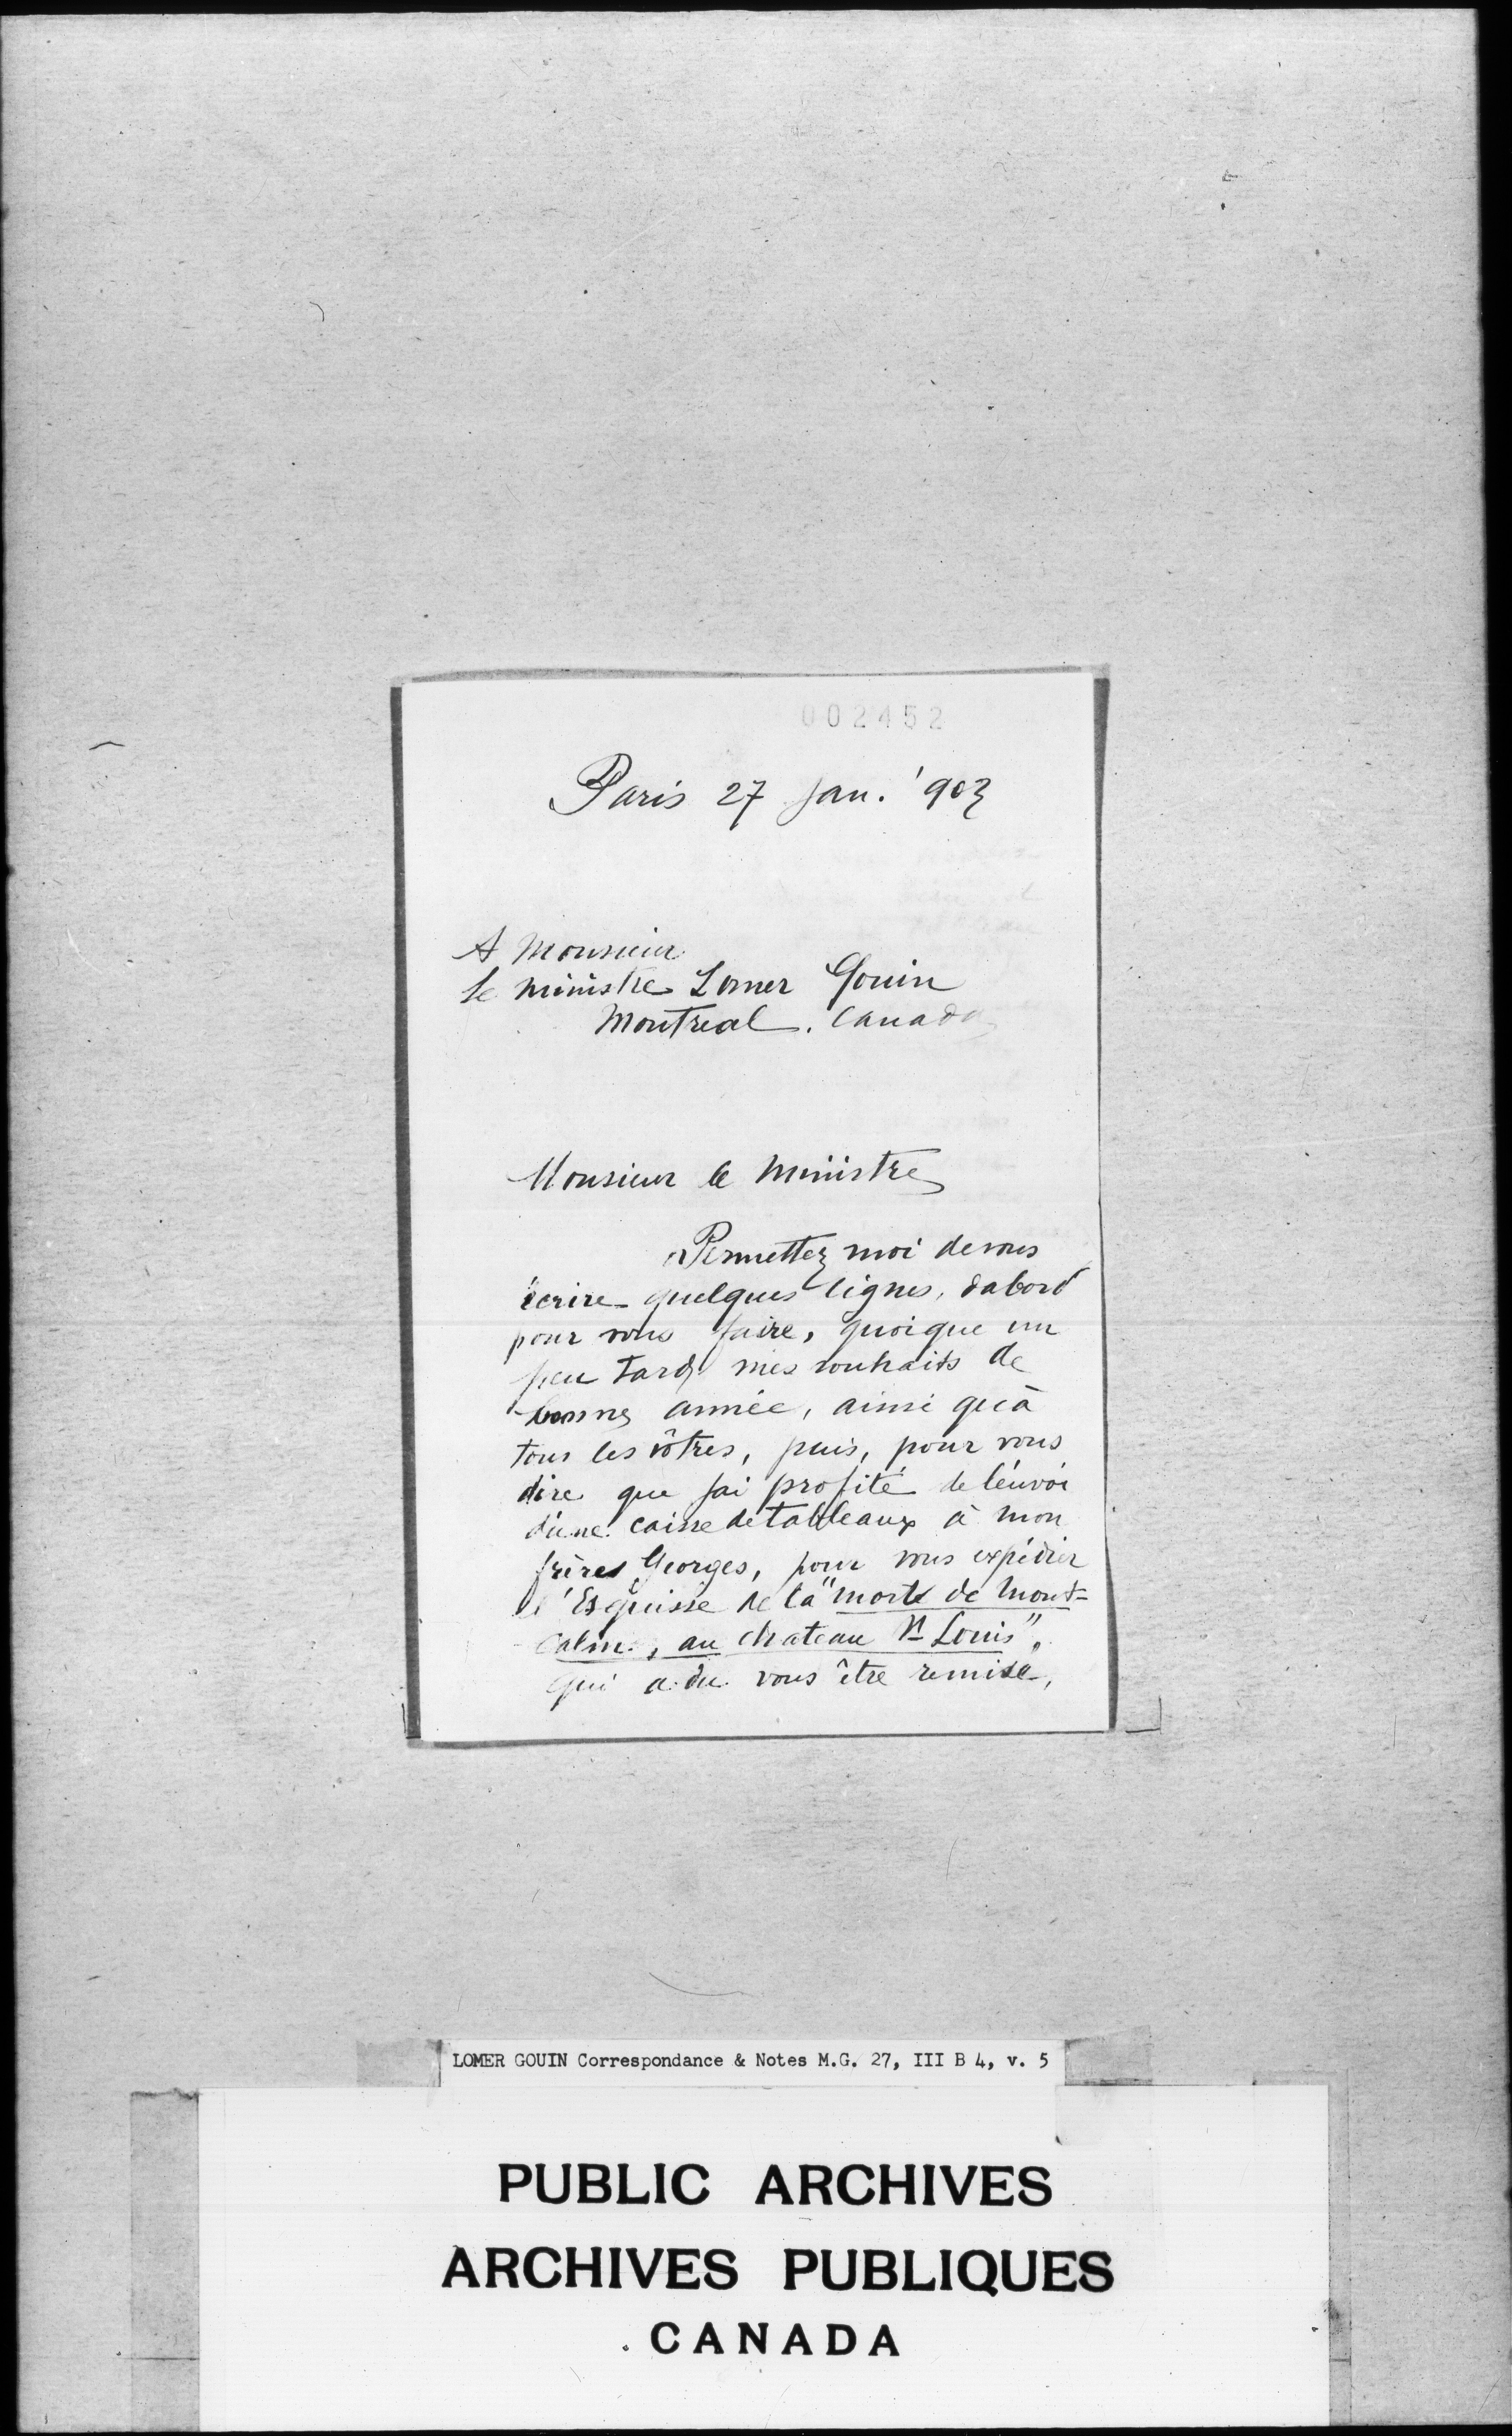 002452
Paris 27 Jan. '903
A Monsieur
le ministre Lomer Gouin
Montreal. Canada
Monsieur le Ministre
Permettez moi de vous
écrire quelques lignes, dabord
pour vous faire, quoique un
peu tard, mes souhaits de
bonne année, ainsi qu'à
tous les vôtres, puis, pour vous
dire que j'ai profité de l'envoi
d'une caisse de tableaux à mon
frère Georges, pour vous expédier
l'Esquisse de la "mort de Mont-
calm, au chateau St Louis",
qui a dû vous être remise,
LOMER GOUIN Correspondance & Notes M.G. 27, III B 4, v. 5
PUBLIC ARCHIVES
ARCHIVES PUBLIQUES
CANADA